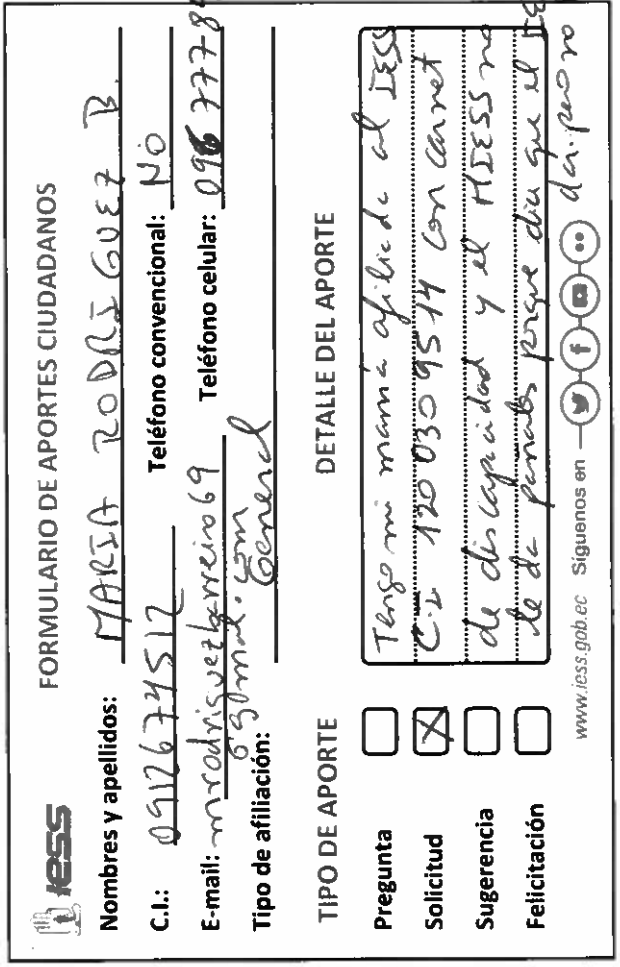 iess
FORMULARIO DE APORTES CIUDADANOS
Nombres y apellidos: MARIA RODRIGUEZ B.
C.I.: 0912674512 Teléfono convencional: NO
E-mail: mrodriguezbarreiro69 Teléfono celular: 096 77778
@gmail.com
Tipo de afiliación: General
TIPO DE APORTE
DETALLE DEL APORTE
Pregunta
Solicitud X
Sugerencia
Felicitación
Tengo mi mamá afiliada al IESS
C.I. 120309514 con carnet
de discapacidad y el MIESS no
le da pañales porque dice que el IE
da. pero no
www.iess.gob.ec Síguenos en